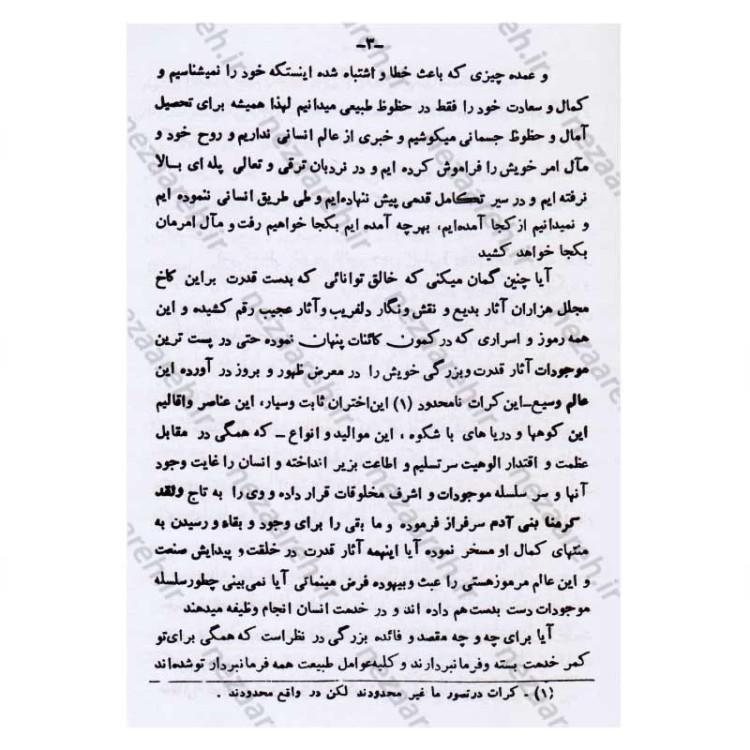 -۳-
و عمده چیزی که باعث خطا و اشتباه شده اینستکه خود را نمیشناسیم و
کمال و سعادت خود را فقط در حظوظ طبیعی میدانیم لهذا همیشه برای تحصیل
آمال و حظوظ جسمانی میکوشیم و خبری از عالم انسانی نداریم و روح خود و
مآل امر خویش را فراموش کرده ایم و در نردبان ترقی و تعالی پله ای بالا
نرفته ایم و در سیر تکامل قدمی پیش ننهاده‌ایم و طی طریق انسانی ننموده ایم
و نمیدانیم از کجا آمده‌ایم، بهرچه آمده ایم بکجا خواهیم رفت و مآل امرمان
بکجا خواهد کشید
آیا چنین گمان میکنی که خالق توانائی که بدست قدرت براین کاخ
مجلل هزاران آثار بدیع و نقش ونگار دلفریب وآثار عجیب رقم کشیده و این
همه رموز و اسراری که در کمون کائنات پنهان نموده حتی در پست ترین
موجودات آثار قدرت وبزرگی خویش را در معرض ظهور و بروز در آورده این
عالم وسیع-این کرات نامحدود (۱) این‌اختران ثابت وسیار، این عناصر واقالیم
این کوهها و دریا های با شکوه ، این موالید و انواع - که همگی در مقابل
عظمت و اقتدار الوهیت سرتسلیم و اطاعت بزیر انداخته و انسان را غایت وجود
آنها و سر سلسله موجودات و اشرف مخلوقات قرار داده و وی را به تاج ولقد
کرمنا بنی آدم سرفراز فرموده و ما بقی را برای وجود و بقاء و رسیدن به
منتهای کمال او مسخر نموده آیا اینهمه آثار قدرت در خلقت و پیدایش صنعت
و این عالم مرموزهستی را عبث وبیهوده فرض مینمائی آیا نمی‌بینی چطورسلسله
موجودات دست بدست‌هم داده اند و در خدمت انسان انجام وظیفه میدهند
آیا برای چه و چه مقصد و فائده بزرگی در نظراست که همگی برای‌تو
کمر خدمت بسته وفرمانبردارند و کلیه‌عوامل طبیعت همه فرمانبردار توشده‌اند
(۱) . کرات درتصور ما غیر محدودند لکن در واقع محدودند .
nezaareh.ir